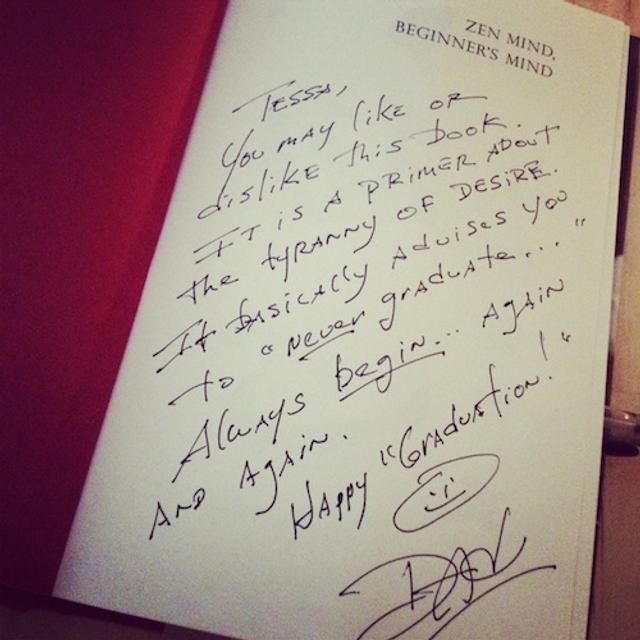 ZEN MIND,
BEGINNER'S MIND
TESSA,
You may like or
dislike this book.
It is a primer about
the tyranny of desire.
It basically advises you
to "never graduate..."
Always begin... again
and again.
Happy "Graduation!"